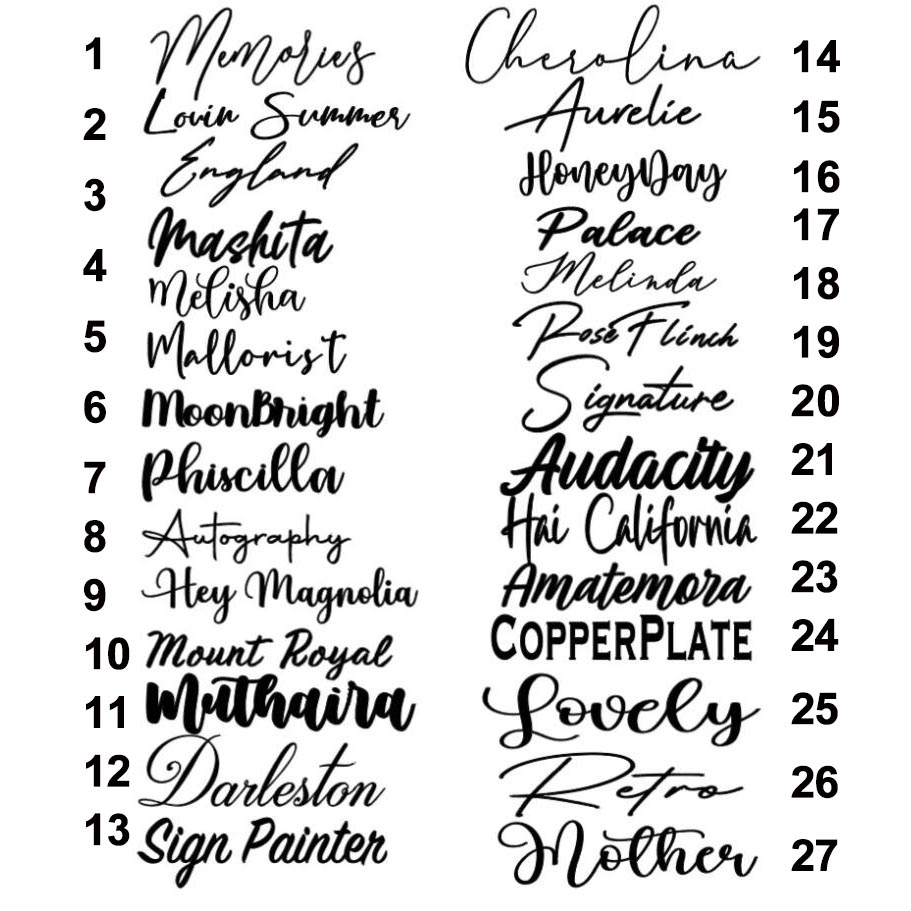 1 Memories
2 Lovin Summer
3 England
4 Mashita
Melisha
5 Mallorist
6 MoonBright
7 Phiscilla
8 Autography
9 Hey Magnolia
10 Mount Royal
11 Muthaira
12 Darleston
13 Sign Painter
Cherolina 14
Aurelie 15
HoneyDay 16
Palace 17
Melinda 18
Rose Flinch 19
Signature 20
Audacity 21
Hai California 22
Amatemora 23
CopperPlate 24
Lovely 25
Retro 26
Mother 27